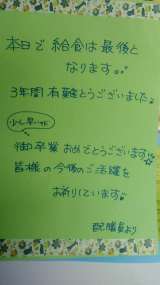 本日で給食は最後と
なります
3年間有難とうございました
少し早いけど
御卒業おめでとうございます
皆様の今後のご活躍を
お祈りしています
配膳員より